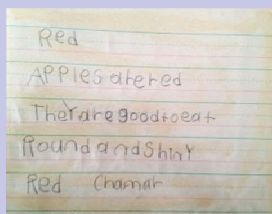 Red
APPles are red
Their are good to eat
Round and Shiny
Red Chamar